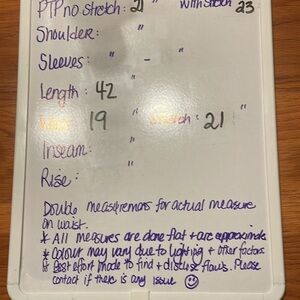 PTP no stretch: 21 " With Stretch 23
Shoulder: "
Sleeves: " - "
Length: 42 "
Waist 19 " Stretch: 21 "
Inseam: "
Rise: "
Double measurements for actual measure
on waist.
* All measures are done flat + are approximate
* Colour may vary due to lighting + other factors
* Best effort made to find + disclose flaws. Please
contact if there is any issue ☺